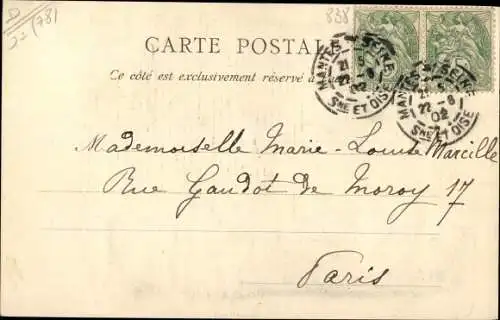 D
22 (781
838
CARTE POSTALE
Ce côté est exclusivement réservé à
MANTES S. SEINE
21 5
22 - 8
02
SNE ET OISE
MANTES S. SEINE
21 5
22 - 8
02
SNE ET OISE
Mademoiselle Marie-Louise Marcille
Rue Gaudot de Moroy 17
Paris